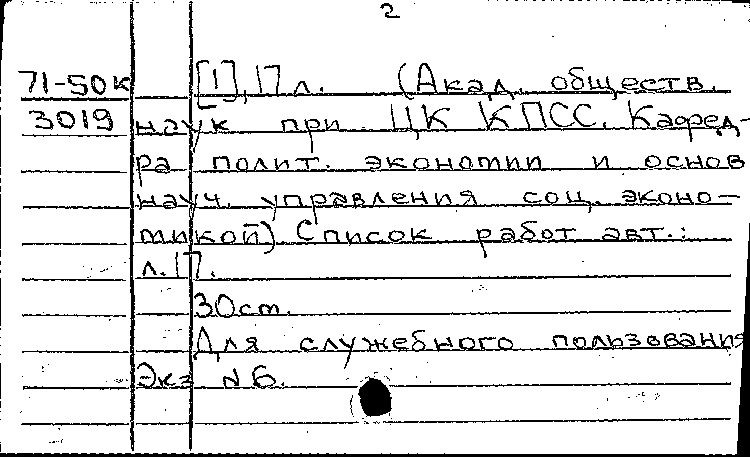 2
71-50к [1], 17 л. (Акад. обществ.
3019 наук при ЦК КПСС. Кафед-
ра полит. экономии и основ
науч. управления соц. эконо-
микой). Список работ авт.:
л. 17.
30 см.
Для служебного пользования
Экз N 6.